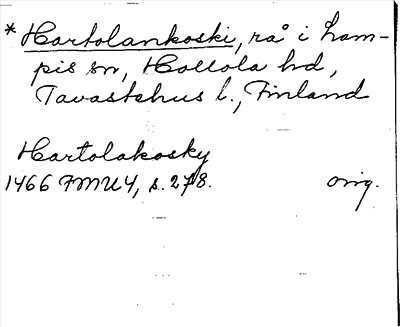 * Hartolankoski, rå i Lam-
pis sn, Hollola hd,
Tavastehus l., Finland
Hartolakosky
1466 FMU 4, s. 278. orig.